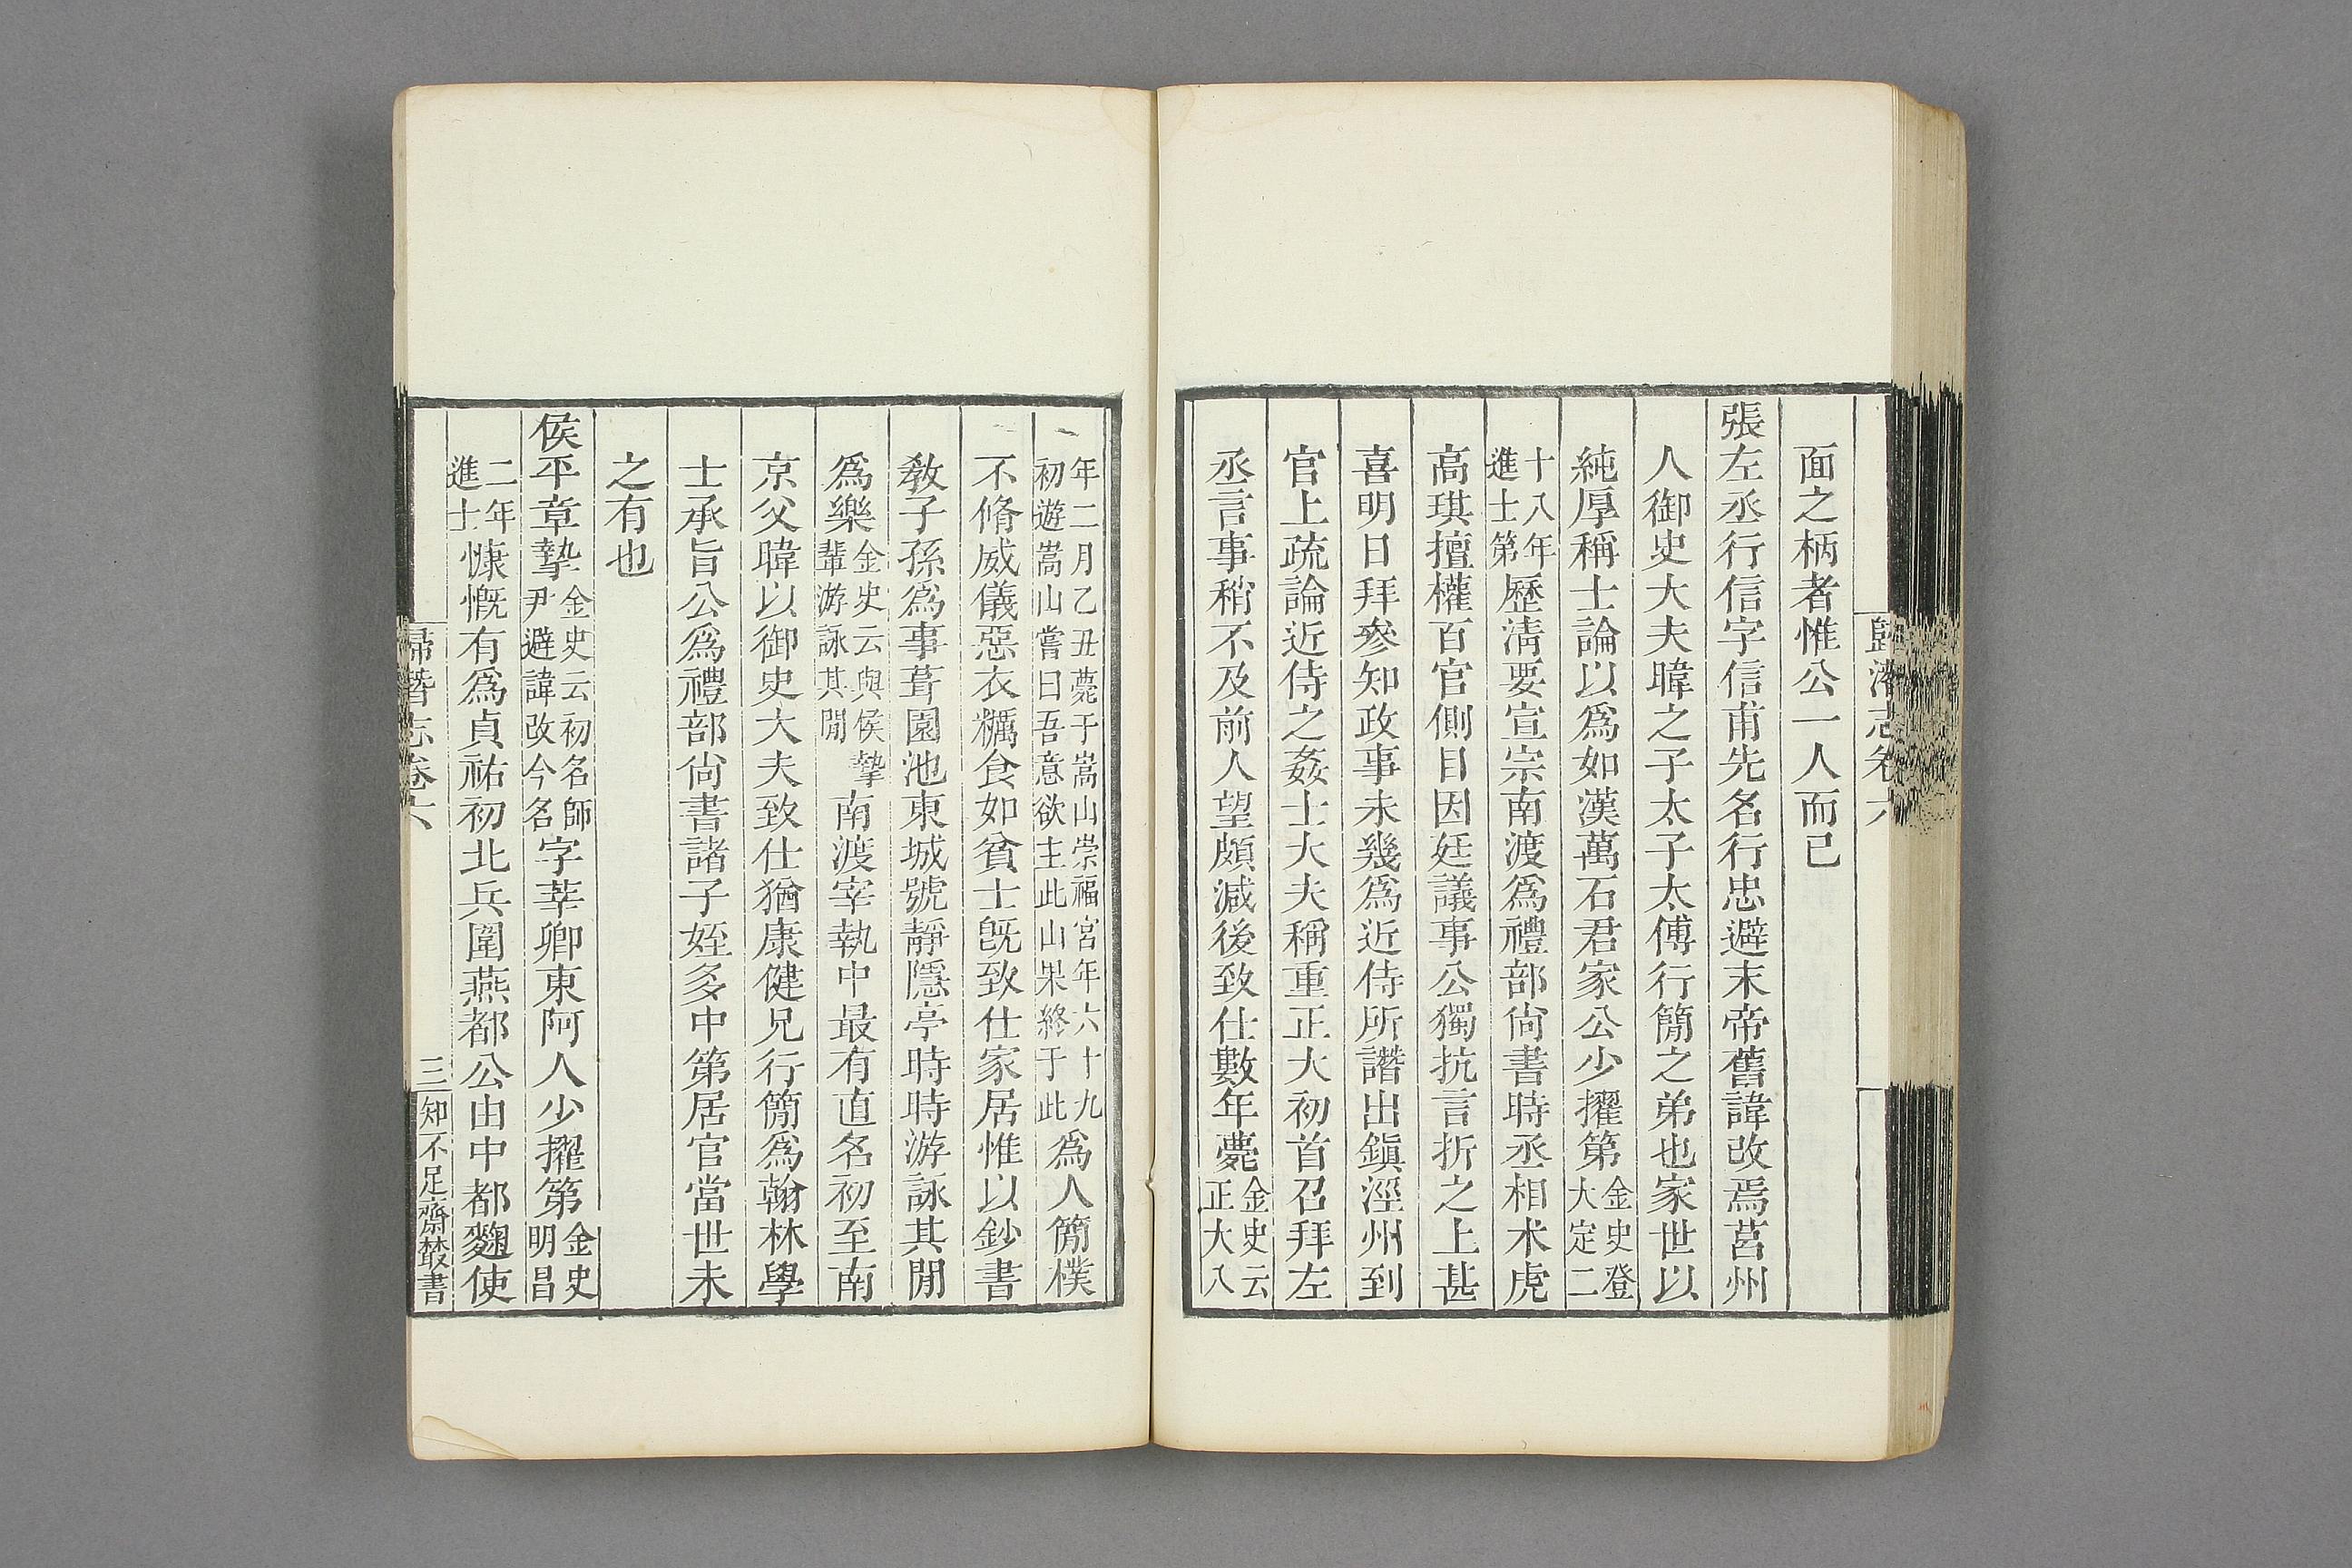 歸潛志卷六
面之柄者惟公一人而已
張左丞行信字信甫先名行忠避末帝舊諱改焉莒州
人御史大夫暐之子太子太傅行簡之弟也家世以
純厚稱士論以爲如漢萬石君家公少擢第金史登大定二
十八年進士第歷淸要宣宗南渡爲禮部尙書時丞相术虎
高琪擅權百官側目因廷議事公獨抗言折之上甚
喜明日拜參知政事未幾爲近侍所譖出鎭涇州到
官上疏論近侍之姦士大夫稱重正大初首召拜左
丞言事稍不及前人望頗減後致仕數年薨金史云正大八
年二月乙丑薨于嵩山崇福宮年六十九初遊嵩山嘗曰吾意欲主此山果終于此爲人簡樸
不脩威儀惡衣糲食如貧士旣致仕家居惟以鈔書
敎子孫爲事葺園池東城號靜隱亭時時游詠其閒
爲樂金史云與侯摯輩游詠其閒南渡宰執中最有直名初至南
京父暐以御史大夫致仕猶康健兄行簡爲翰林學
士承旨公爲禮部尙書諸子姪多中第居官當世未
之有也
侯平章摯金史云初名師尹避諱改今名字莘卿東阿人少擢第金史明昌
二年進士慷慨有爲貞祐初北兵圍燕都公由中都麴使
歸潛志卷六
三
知不足齋叢書